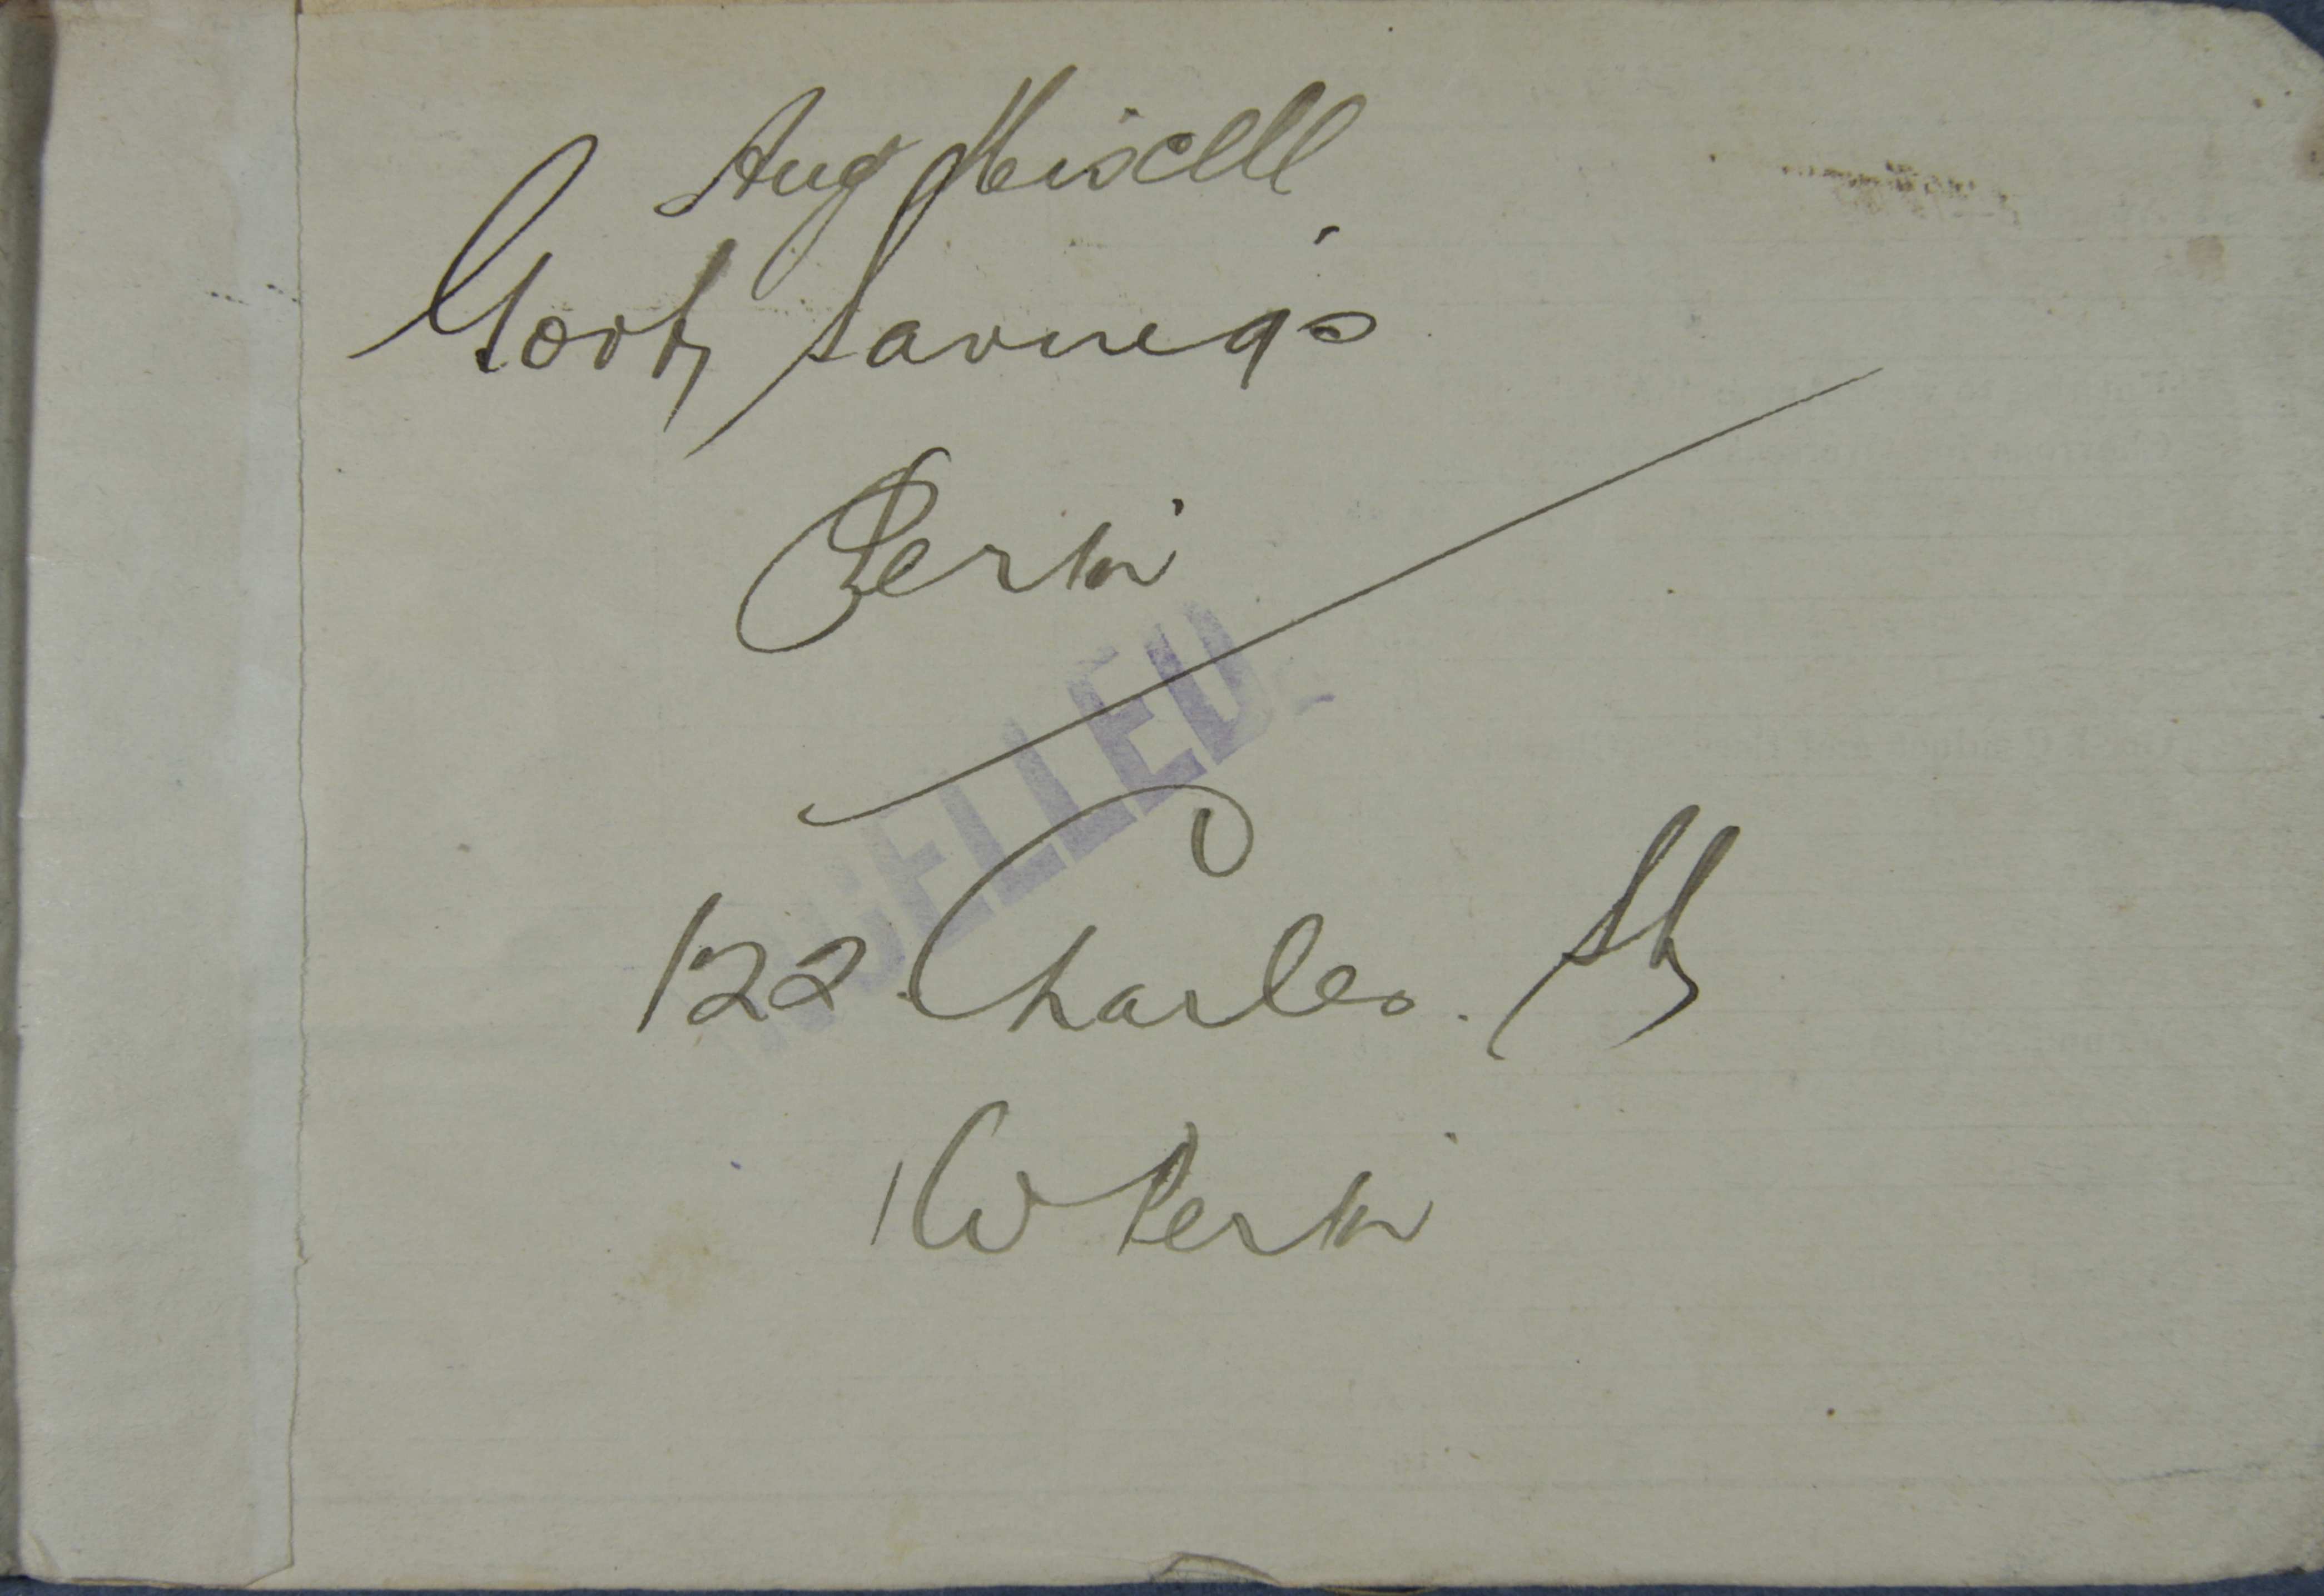 Govt Savings
Perth
CELLED
122 Charles St
W Perth